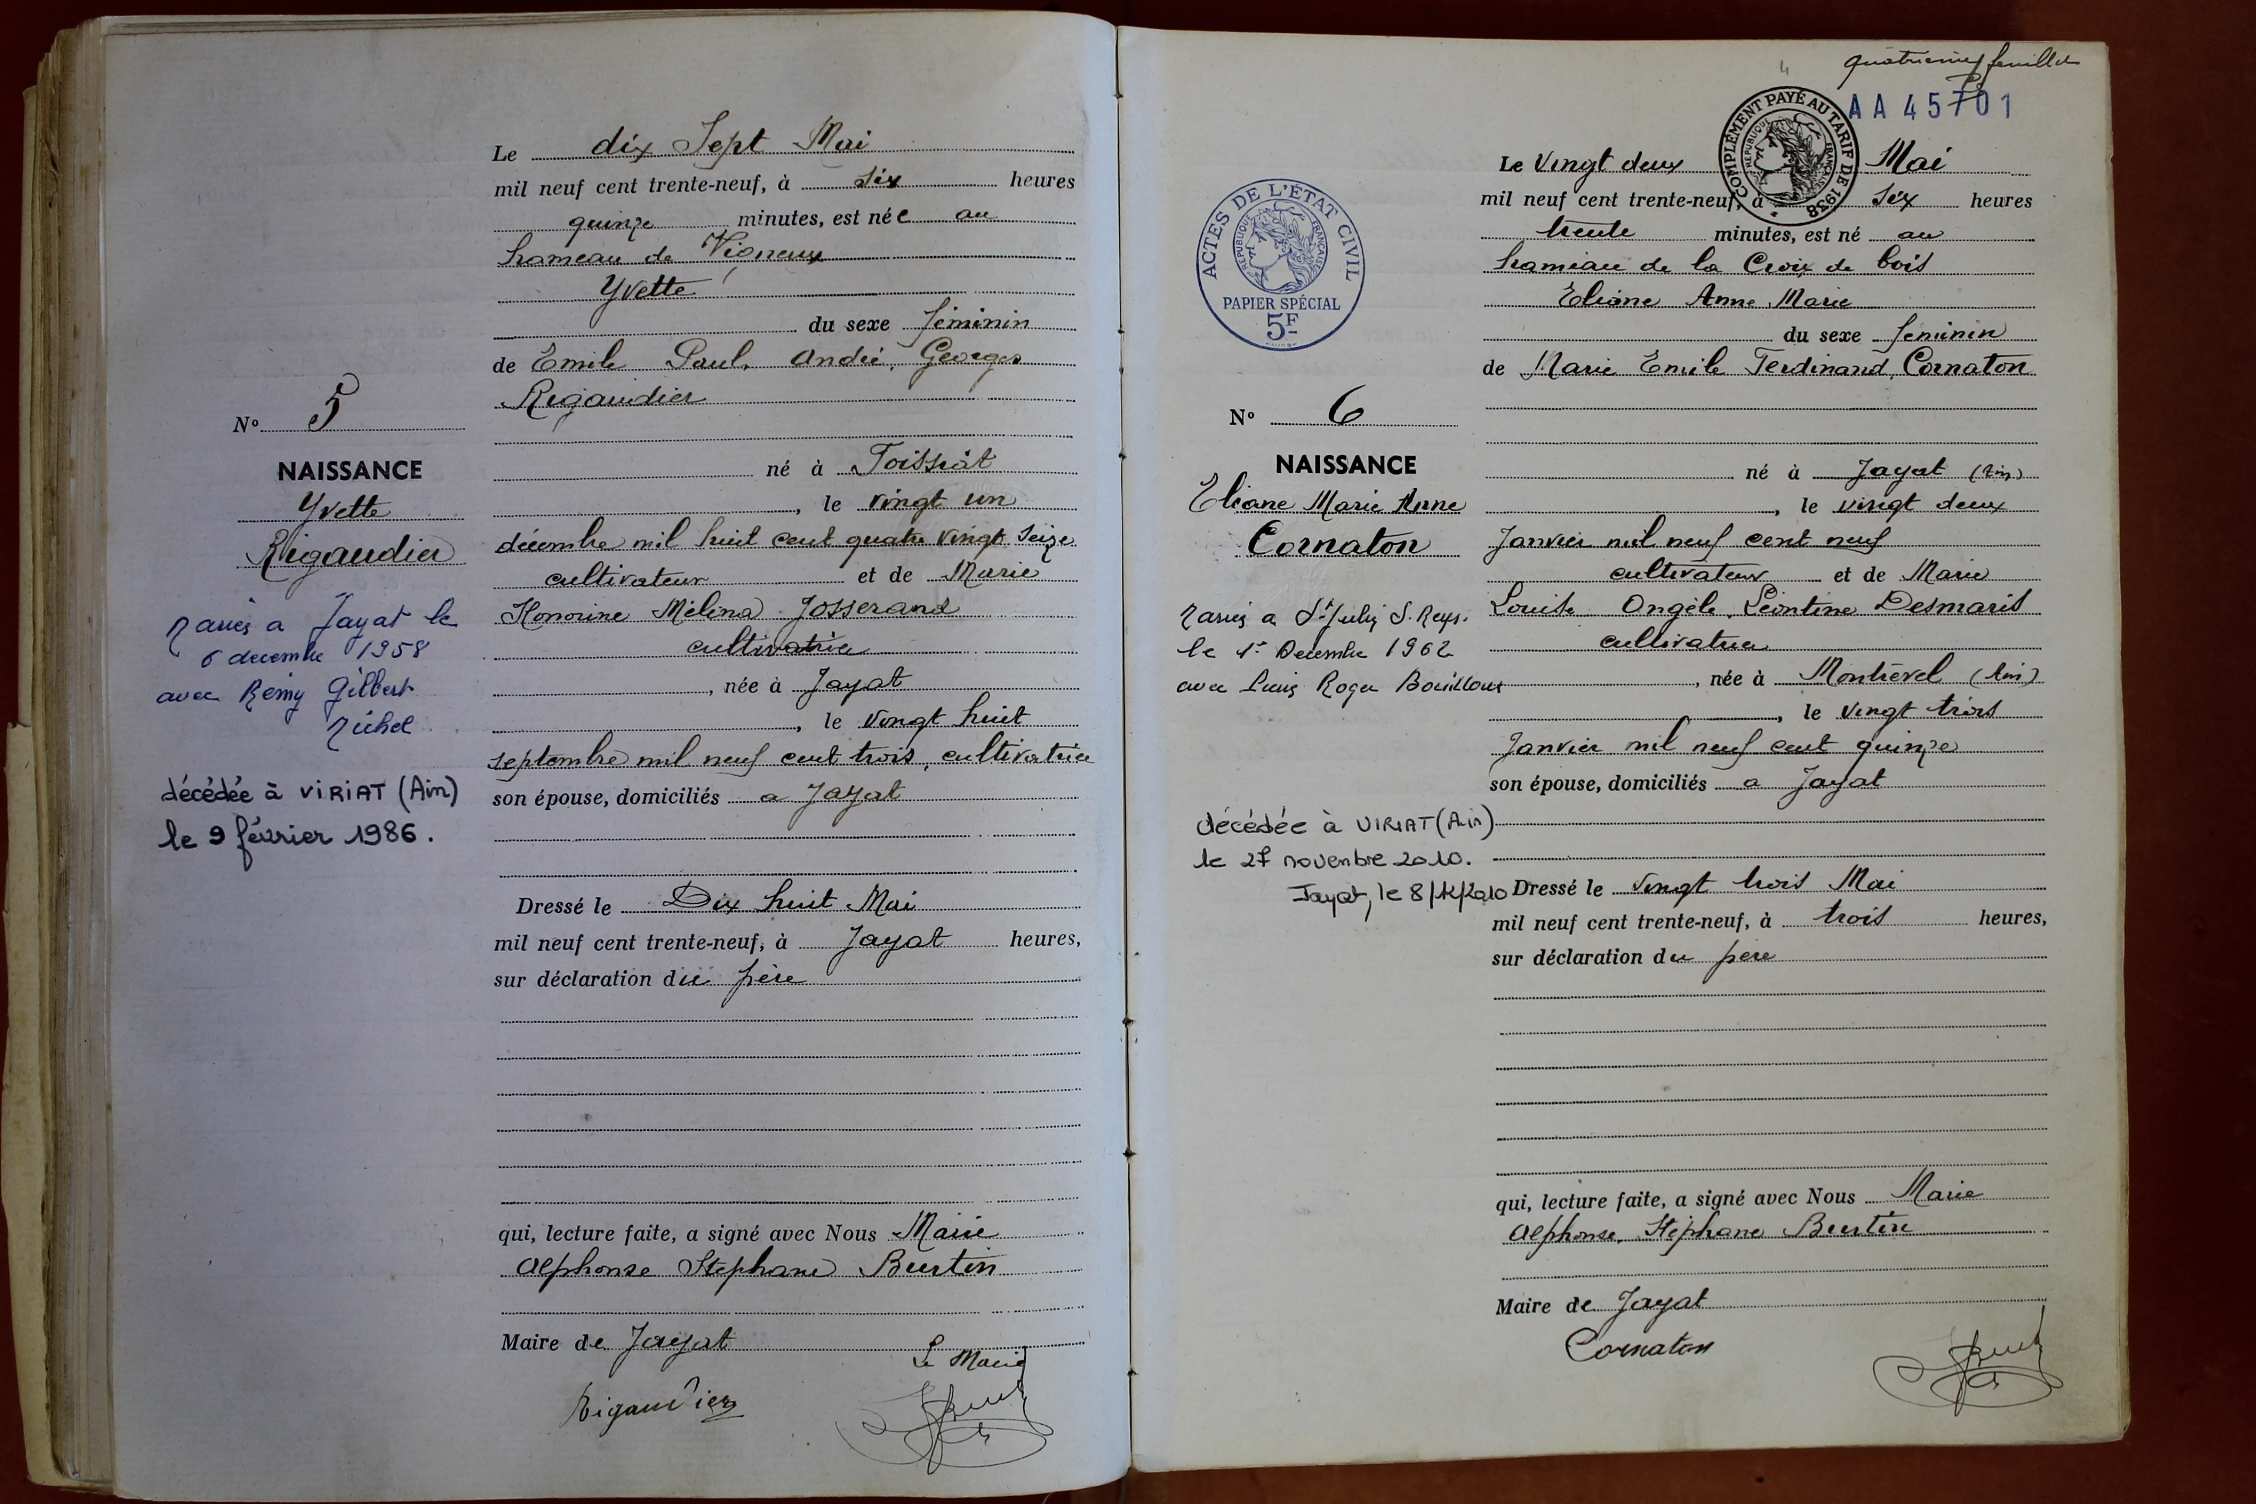 Le dix Sept Mai
mil neuf cent trente-neuf, à six heures
quinze minutes, est née au
hameau de Vigneux
Yvette
du sexe féminin
de Emile Paul, André, Georges
Rigaudier
né à Foissiat
, le vingt un
décembre mil huit cent quatre vingt seize
cultivateur et de Marie
Honorine Mélina Josserand
cultivatrice
, née à Jayat
, le vingt huit
septembre mil neuf cent trois, cultivatrice
son épouse, domiciliés a Jayat
Dressé le Dix huit Mai
mil neuf cent trente-neuf, à Jayat heures,
sur déclaration du père
qui, lecture faite, a signé avec Nous Marie
Alphonse Stephane Burtin
Maire de Jayat
Le Maire
Rigaudier
N° 5
NAISSANCE
Yvette
Rigaudier
Mariée a Jayat le
6 decembre 1958
avec Rémy Gilbert
Michel
décédée à VIRIAT (Ain)
le 9 février 1986.
quatrième feuillet
4
AA 45701
COMPLÉMENT PAYÉ AU TARIF DE 1938
RÉPUBLIQUE FRANÇAISE
ACTES DE L'ÉTAT CIVIL
RÉPUBLIQUE FRANÇAISE
PAPIER SPÉCIAL
5F
Le vingt deux Mai
mil neuf cent trente-neuf, à six heures
trente minutes, est né au
hameau de la Croix de bois
Eliane Anne Marie
du sexe feminin
de Marie Emile Ferdinand, Cornaton
né à Jayat (Ain)
, le vingt deux
Janvier mil neuf cent neuf
cultivateur et de Marie
Louise Angèle Léontine Desmaris
cultivatrice
, née à Montrevel (Ain)
, le vingt trois
Janvier mil neuf cent quinze
son épouse, domiciliés a Jayat
Dressé le vingt trois Mai
mil neuf cent trente-neuf, à trois heures,
sur déclaration du père
qui, lecture faite, a signé avec Nous Marie
Alphonse, Stéphane Burtin
Maire de Jayat
Cornaton
N° 6
NAISSANCE
Eliane Marie Anne
Cornaton
Mariée a St Julien S. Reys.
le 1er Decembre 1962
avec Louis Roger Bouilloux
décédée à VIRIAT (Ain)
le 27 novembre 2010.
Jayat, le 8/12/2010